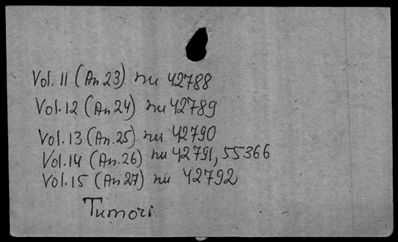 Vol. 11 (An 23) nu 42788
Vol. 12 (An 24) nu 42789
Vol. 13 (An. 25) nu 42790
Vol. 14 (An. 26) nu 42791, 55366
Vol. 15 (An 27) nu 42792
Tumori